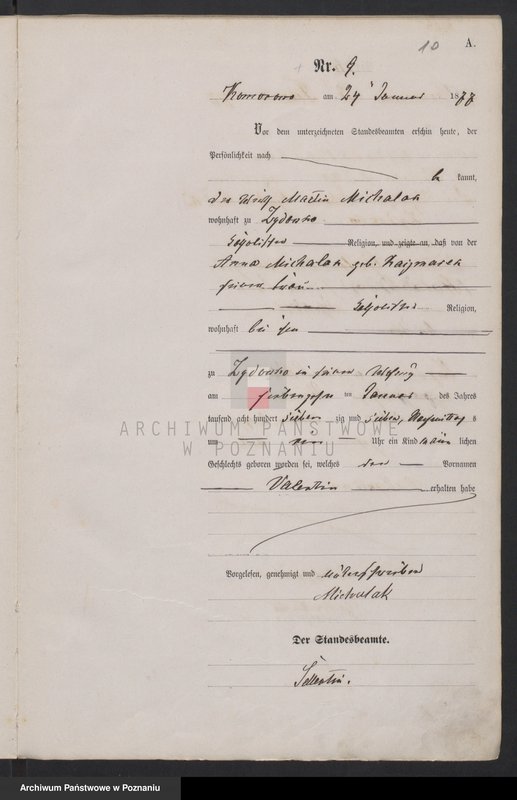 10 A.
Nr. 9.
Komorowo am 24 Januar 1877
Vor dem unterzeichneten Standesbeamten erschien heute, der
Persönlichkeit nach
be kannt,
der Wirth Martin Michalak
wohnhaft zu Zydowko
katholischer Religion, und zeigte an, daß von der
Anna Michalak geb. Kaczmarek
seiner Ehefrau
katholischer Religion,
wohnhaft bei ihm
zu Zydowko in seiner Wohnung
am siebenzehn ten Januar des Jahres
tausend acht hundert sieben zig und sieben, Nachmittags
um Uhr ein Kind männ lichen
Geschlechts geboren worden sei, welches den Vornamen
Valentin erhalten habe
ARCHIWUM PAŃSTWOWE
W POZNANIU
Vorgelesen, genehmigt und unterschrieben
Michalak
Der Standesbeamte.
Archiwum Państwowe w Poznaniu